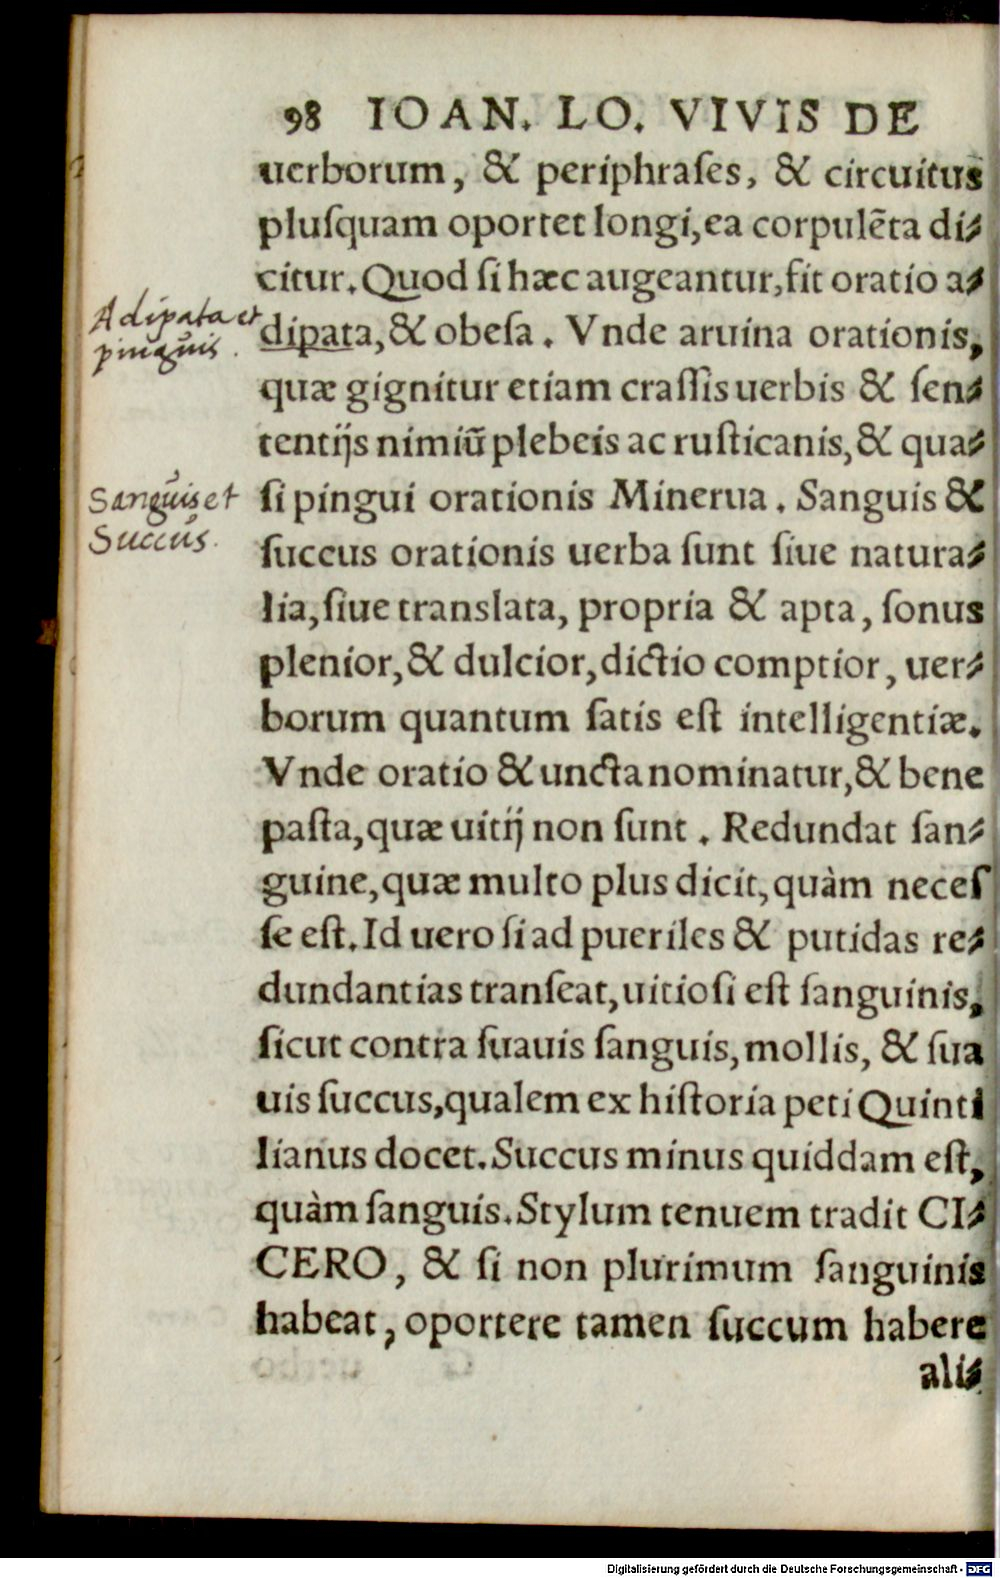 98 IOAN. LO. VIVIS DE
uerborum, & periphraſes, & circuitus
pluſquam oportet longi, ea corpulēta di⸗
citur. Quod ſi hæc augeantur, fit oratio a⸗
Adipata et
pinguis.
dipata, & obeſa. Vnde aruina orationis,
quæ gignitur etiam craſſis uerbis & ſen⸗
tentijs nimiū plebeis ac ruſticanis, & qua⸗
Sanguis et
Succus.
ſi pingui orationis Minerua. Sanguis &
ſuccus orationis uerba ſunt ſiue natura⸗
lia, ſiue translata, propria & apta, ſonus
plenior, & dulcior, dictio comptior, uer⸗
borum quantum ſatis eſt intelligentiæ.
Vnde oratio & uncta nominatur, & bene
paſta, quæ uitij non ſunt. Redundat ſan⸗
guine, quæ multo plus dicit, quàm neceſ
ſe eſt. Id uero ſi ad pueriles & putidas re⸗
dundantias tranſeat, uitioſi eſt ſanguinis,
ſicut contra ſuauis ſanguis, mollis, & ſua
uis ſuccus, qualem ex hiſtoria peti Quinti
lianus docet. Succus minus quiddam eſt,
quàm ſanguis. Stylum tenuem tradit CI⸗
CERO, & ſi non plurimum ſanguinis
habeat, oportere tamen ſuccum habere
ali⸗
Digitalisierung gefördert durch die Deutsche Forschungsgemeinschaft - DFG